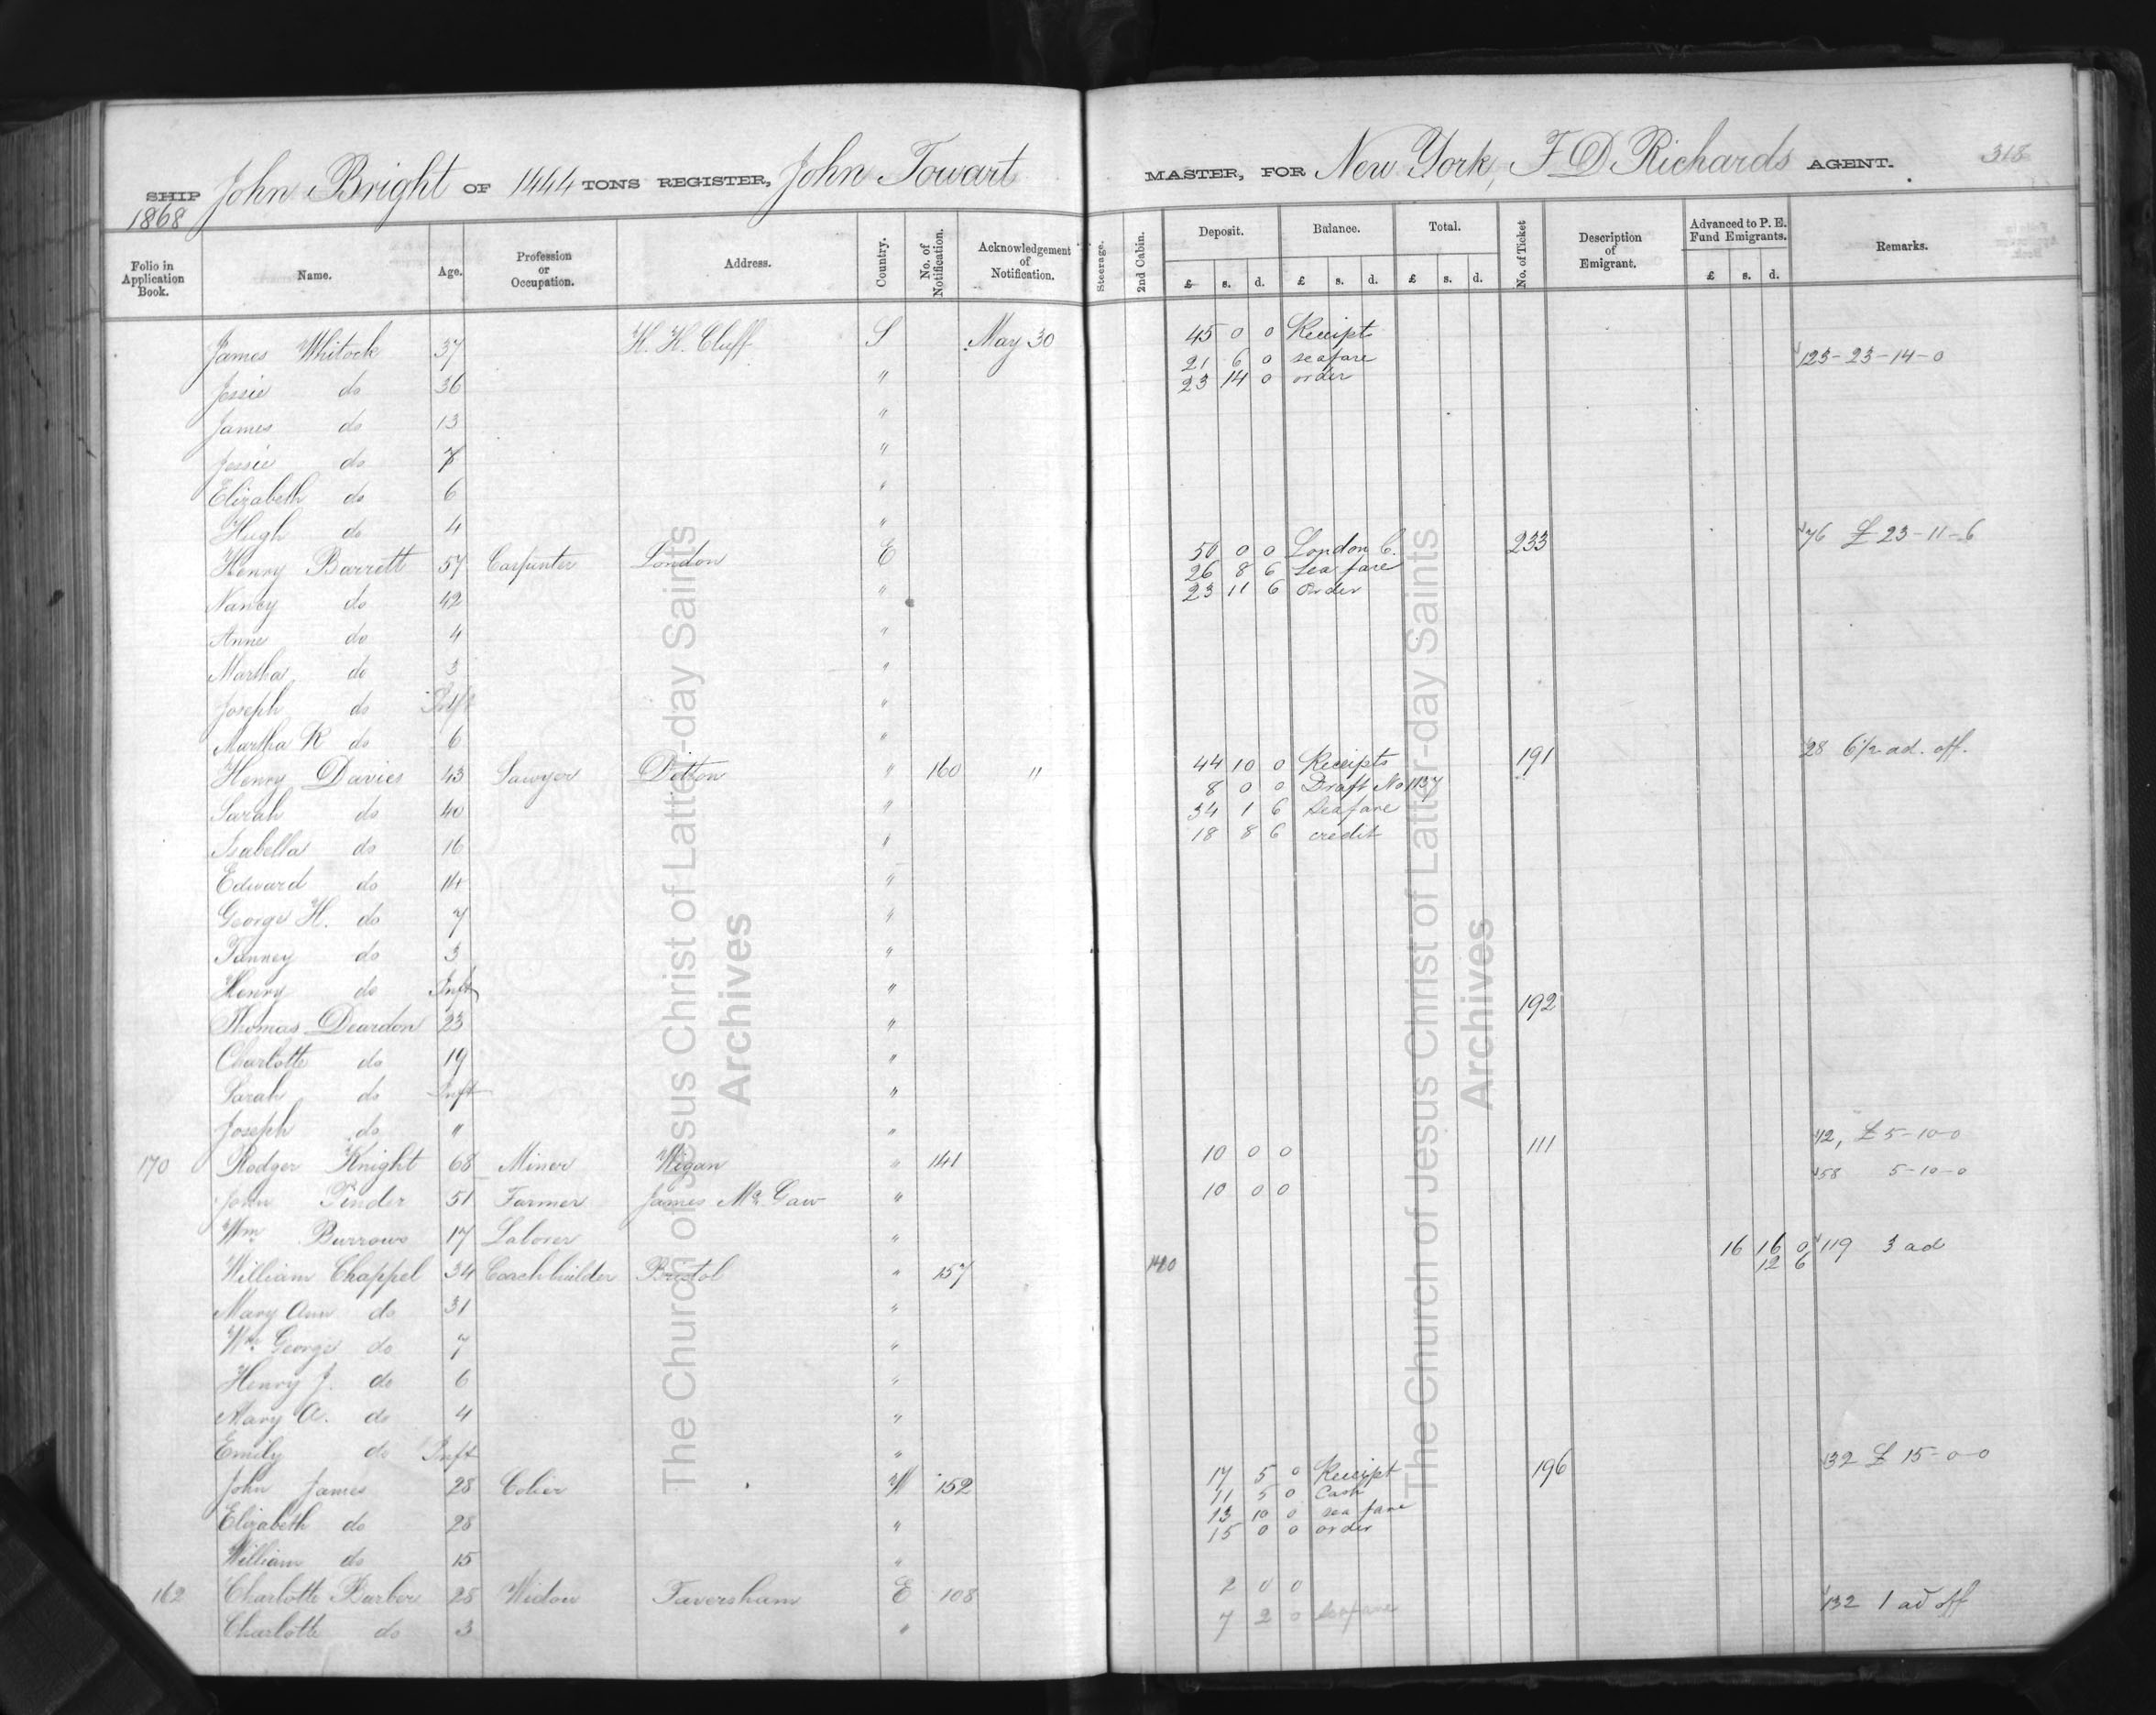 SHIP John Bright OF 1444 TONS REGISTER, John Towart MASTER, FOR New York, F D Richards AGENT. 318
1868
Folio in Application Book. Name. Age. Profession or Occupation. Address. Country. No. of Notification. Acknowledgement of Notification. Steerage. 2nd Cabin. Deposit. £ s. d. Balance. £ s. d. Total. £ s. d. No. of Ticket Description of Emigrant. Advanced to P. E. Fund Emigrants. £ s. d. Remarks.
James Whitock 37 H. H. Cluff S May 30 45 0 0 Receipt
21 6 0 seafare 123-23-14-0
Jessie do 36 " 23 14 0 order
James do 13 "
Jessie do 7 "
Elizabeth do 6 "
Hugh do 4 "
Henry Barrett 57 Carpenter London E 50 0 0 London C. 233 76 £ 23-11-6
26 8 6 Sea fare
Nancy do 42 " 23 11 6 Order
Anne do 4 "
Martha do 3 "
Joseph do "
Martha R do 6 "
Henry Davies 43 Sawyer Ditton " 160 " 44 10 0 Receipts 191 28 6 1/2 ad. off.
8 0 0 Draft No 1137
Sarah do 40 " 34 1 6 Seafare
18 8 6 credit
Isabella do 16 "
Edward do 14 "
George H. do 7 "
Fanney do 3 "
Henry do Inft "
Thomas Deardon 23 " 192
Charlotte do 19 "
Sarah do Inft "
Joseph do " "
170 Rodger Knight 68 Miner Wigan " 141 10 0 0 111 12, £ 5-10-0
John Pinder 51 Farmer James Mc Gaw " 10 0 0 58 5-10-0
Wm Burrows 17 Laborer "
William Chappel 34 Coachbuilder Bristol " 157 16 16 0 119 3 ad
12 6
Mary Ann do 31 "
Wm George do 7 "
Henry J. do 6 "
Mary A. do 4 "
Emily do Inft "
John James 28 Colier W 152 17 5 0 Receipt 196 132 £ 15-0-0
11 5 0 Cash
Elizabeth do 28 " 13 10 0 sea fare
15 0 0 order
William do 15 "
162 Charlotte Barber 28 Widow Faversham E 108 2 0 0 132 1 ad off
Charlotte do 3 " 7 2 0 Seafare
The Church of Jesus Christ of Latter-day Saints
Archives
The Church of Jesus Christ of Latter-day Saints
Archives